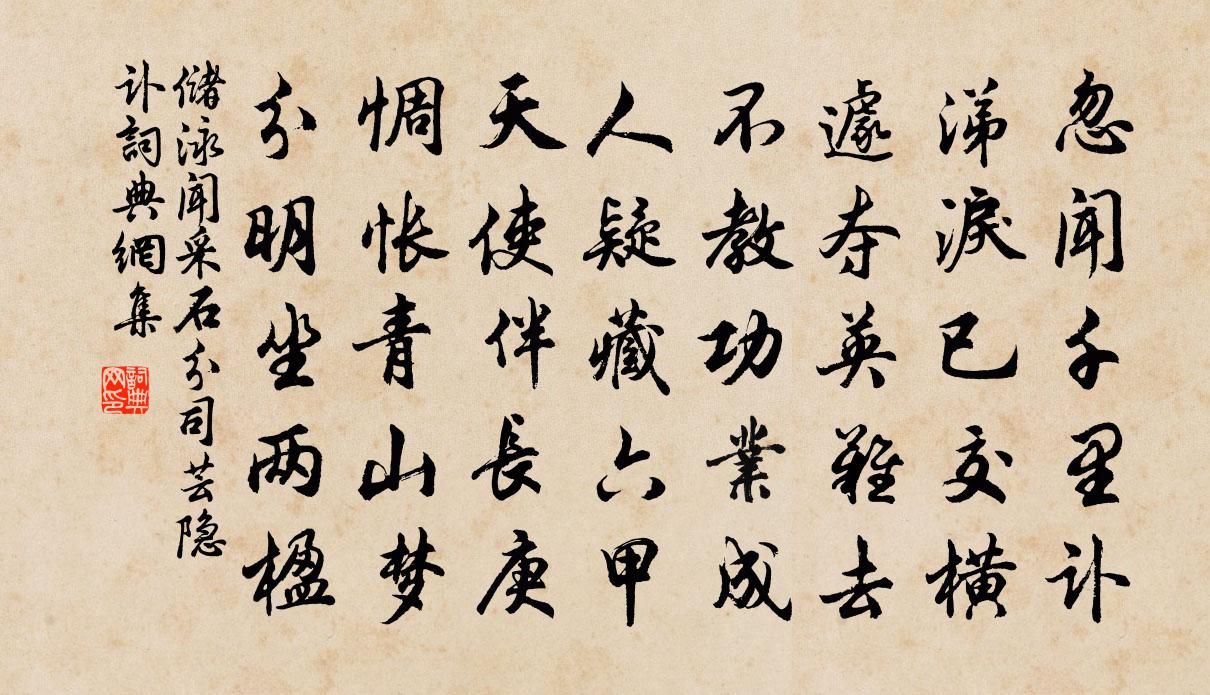 忽闻千里讣
涕淚已交横
遽夺英難去
不教功業成
人疑藏六甲
天使伴長庚
惆怅青山梦
分明坐两楹
儲泳闻采石分司芸隐
讣詞典網集
詞典网印